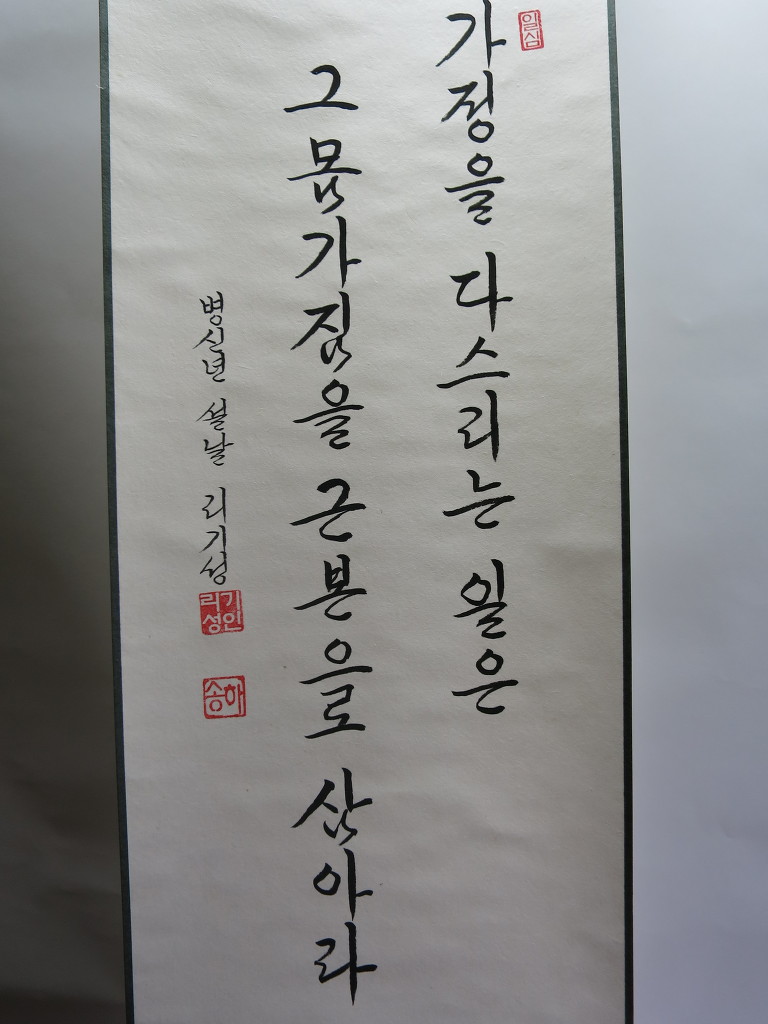 일심
가정을 다스리는 일은
그 몸가짐을 근본으로 삼아라
병신년 설날 리기성
리기성인
송하